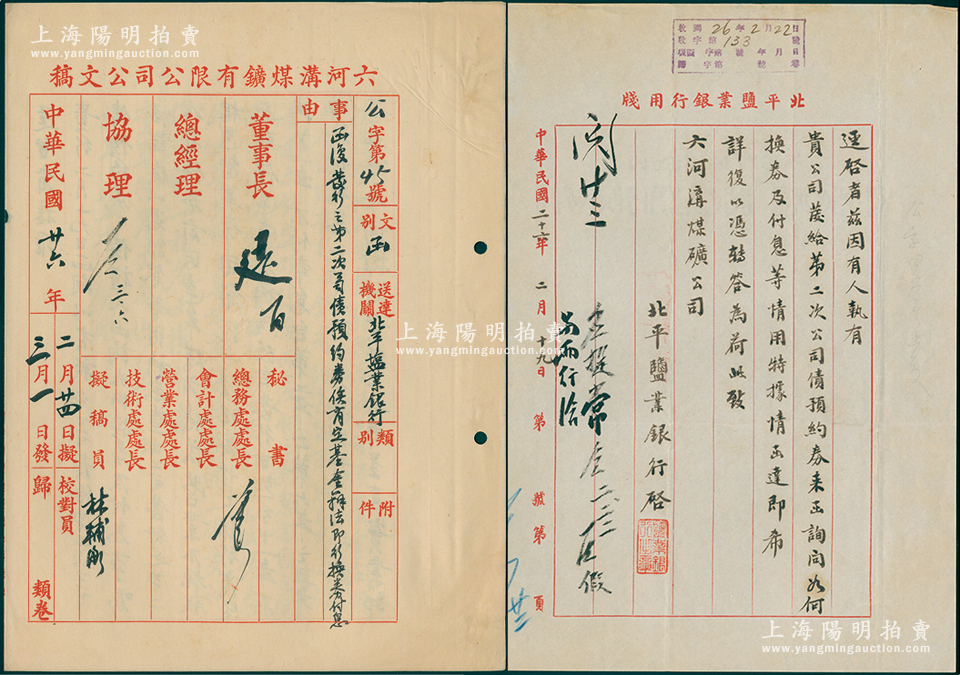 上海陽明拍賣
www.yangmingauction.com
六河溝煤鑛有限公司公文稿
公字第45號
文別 函
送達機關 北平鹽業銀行
類別
附件
事由
函復發行之第二次公司債預約券俟有定基金辦法即行換券及付息
董事長
總經理
協理
中華民國廿六年
秘書
總務處處長
會計處處長
營業處處長
技術處處長
擬稿員 林輔
二月廿四日擬
三月一日發
校對員
歸類卷
收國26年2月22日
收字第133號
北平鹽業銀行用牋
逕啓者茲因有人執有
貴公司發給第二次公司債預約券来函詢问如何
換券及付息等情用特據情函達即希
詳復以憑轉答為荷此致
六河溝煤礦公司
北平鹽業銀行啓
中華民國二十六年二月十九日
第號第頁
閱 廿三
上海陽明拍賣
www.yangmingauction.com
上海陽明拍賣
www.yangmingauction.com